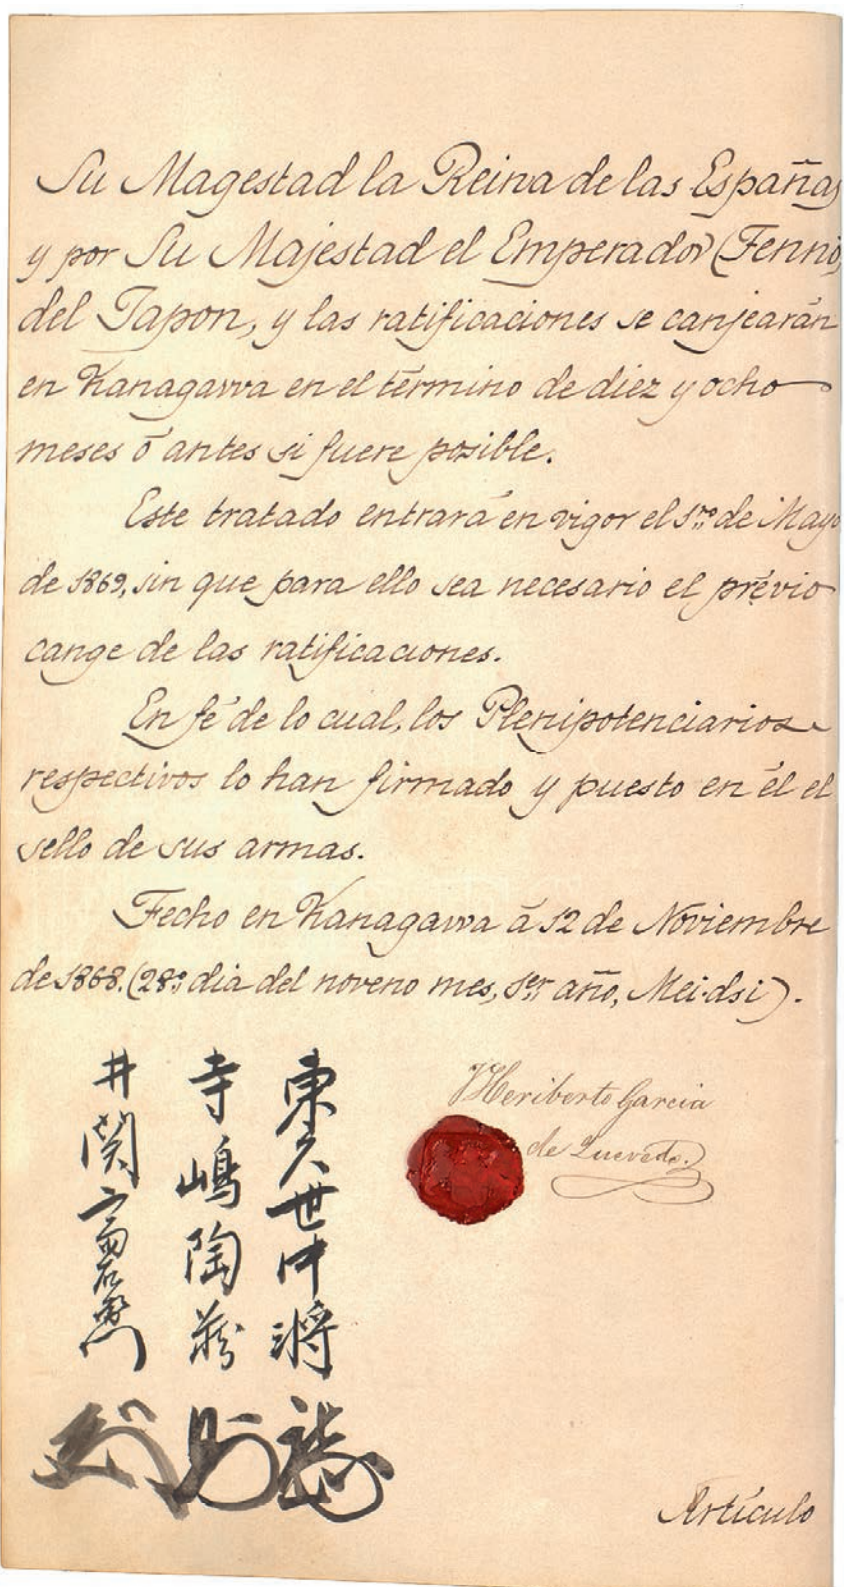 Su Magestad la Reina de las Españas
y por Su Majestad el Emperador (Tenno)
del Japon, y las ratificaciones se canjearán
en Kanagawa en el término de diez y ocho
meses ó antes si fuere posible.
Este tratado entrará en vigor el 1ro de Mayo
de 1869, sin que para ello sea necesario el prévio
cange de las ratificaciones.
En fé de lo cual, los Plenipotenciarios
respectivos lo han firmado y puesto en él el
sello de sus armas.
Fecho en Kanagawa á 12 de Noviembre
de 1868. (28º dia del noveno mes, 1er año, Mei-dsi).
東久世中将
寺嶋陶蔵
井関斎右衛門
Heriberto Garcia
de Quevedo.
Artículo